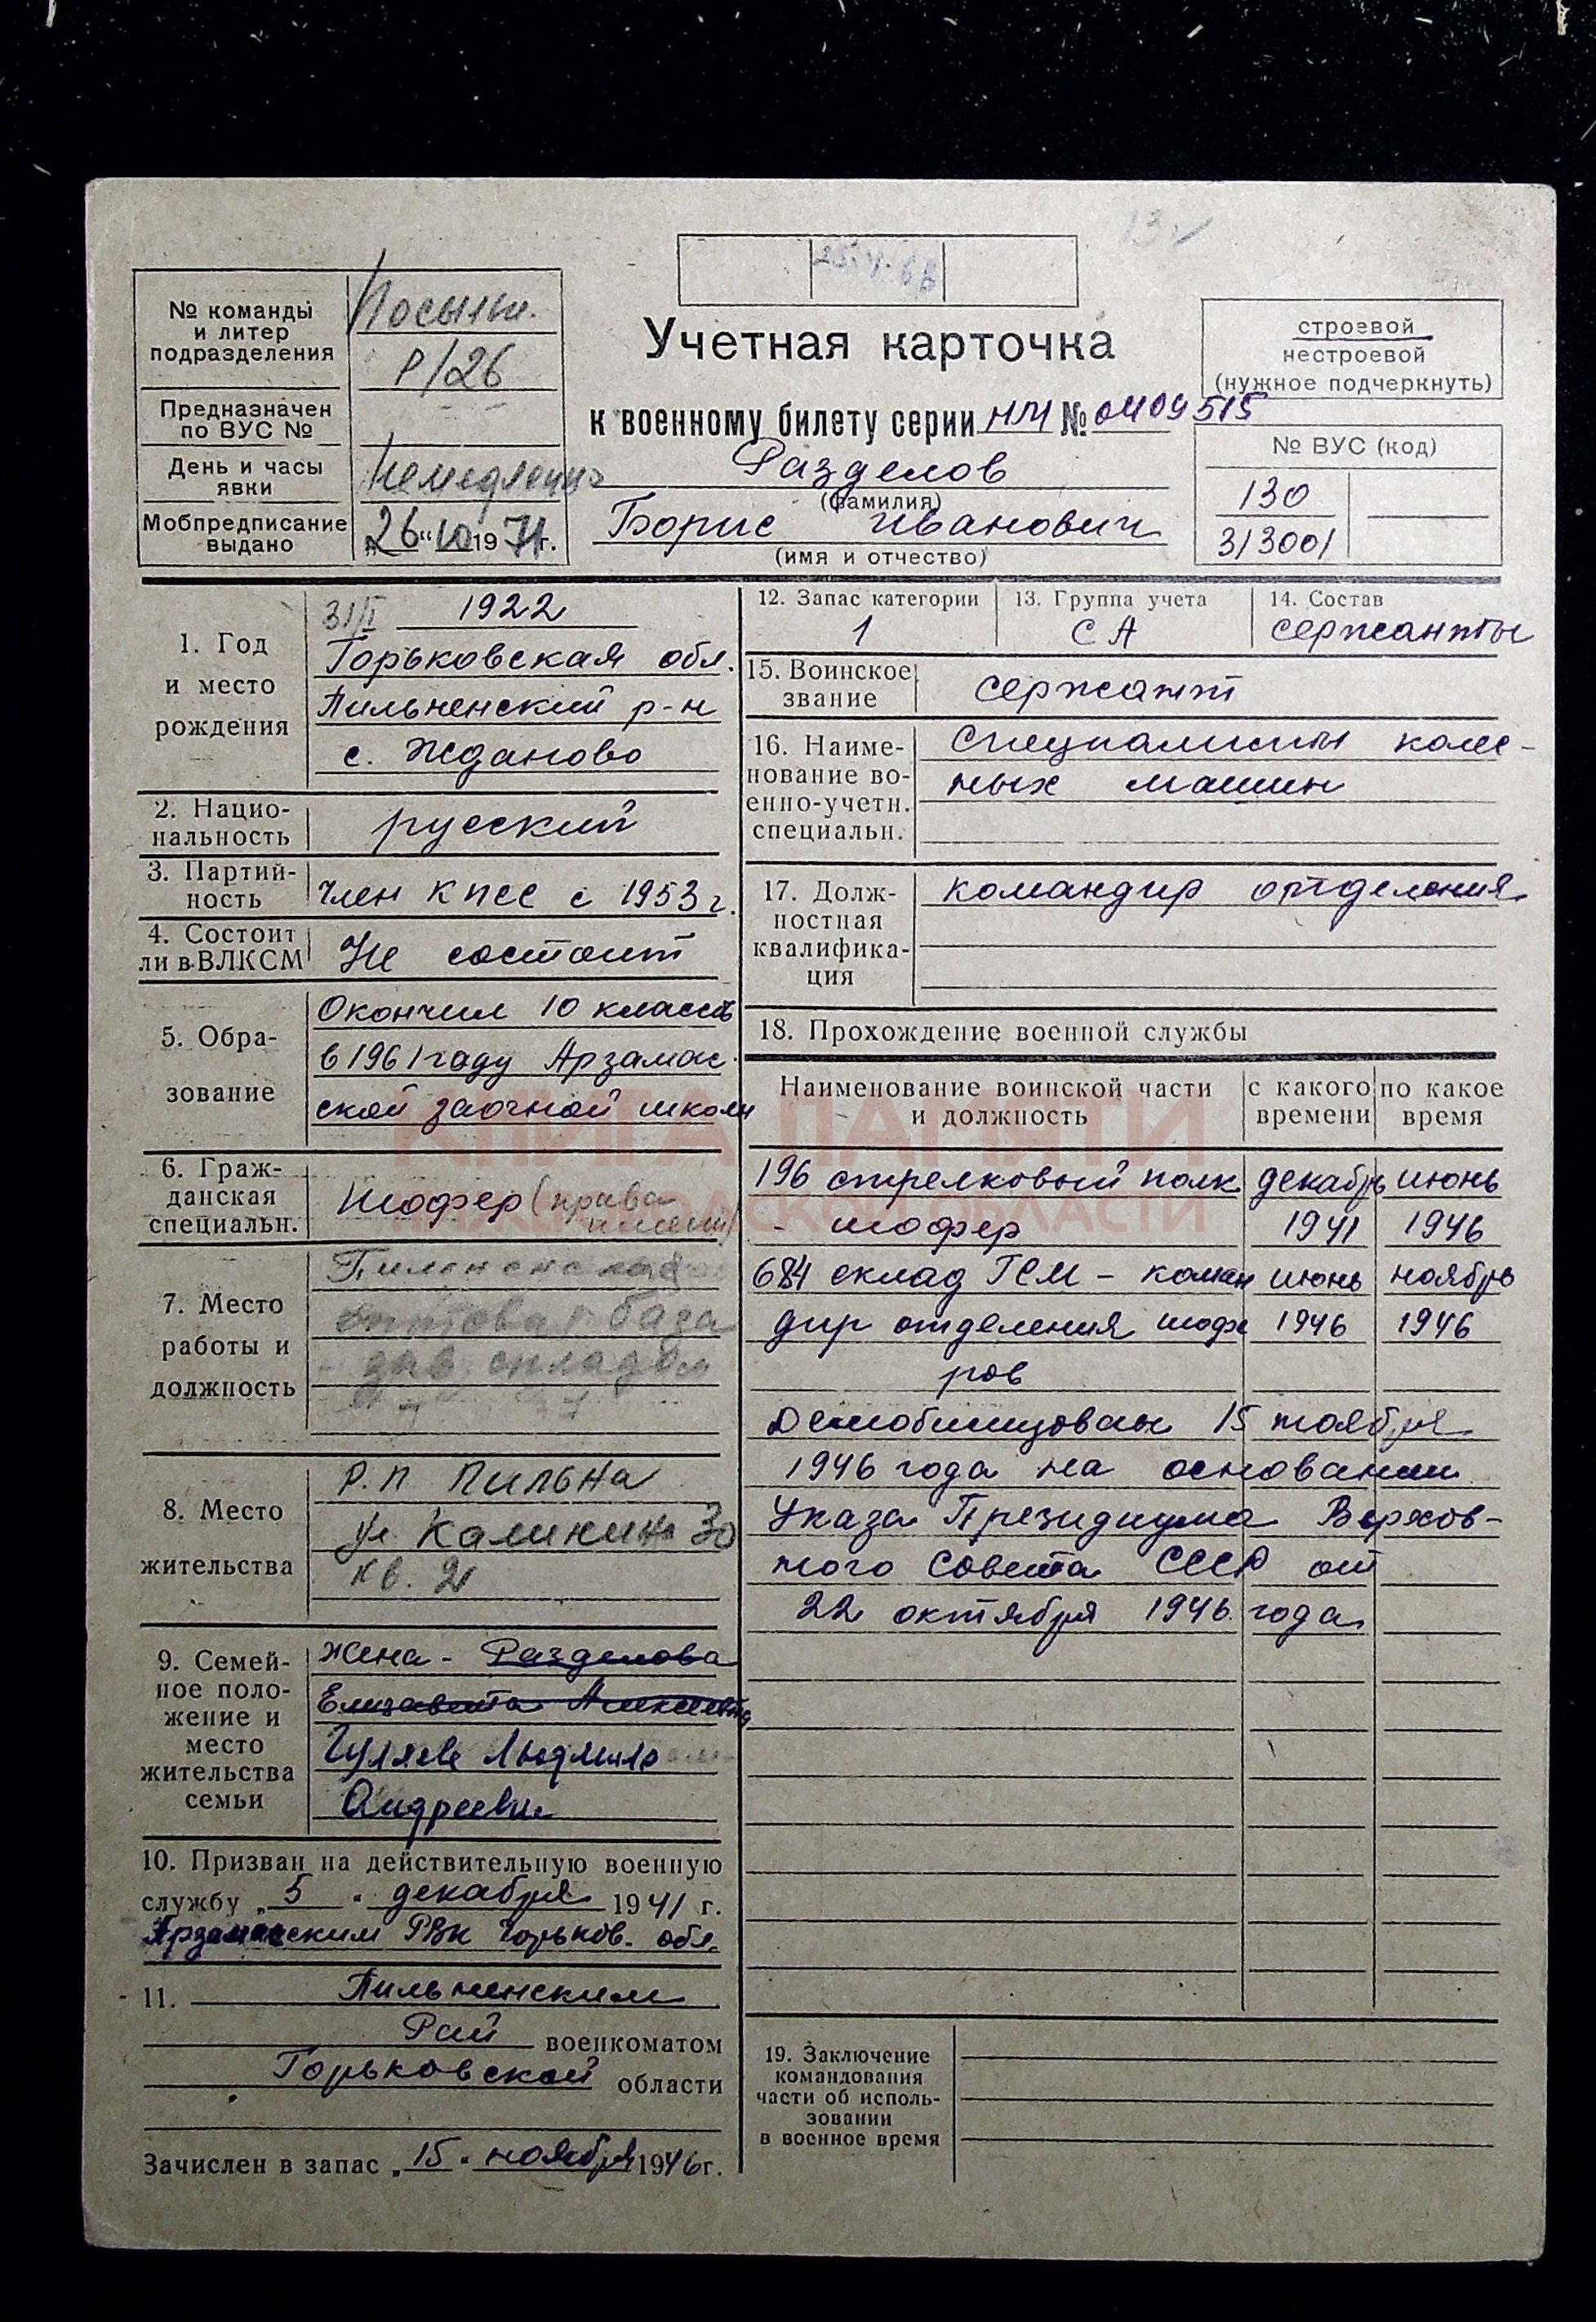 25.V.68
№ команды
и литер
подразделения
Р/26
Предназначен
по ВУС №
День и часы
явки
Немедленно
Мобпредписание
выдано
„26“ 10 1971г.
Учетная карточка
к военному билету серии НМ № 0409515
Разделов
(фамилия)
Борис Иванович
(имя и отчество)
строевой
нестроевой
(нужное подчеркнуть)
№ ВУС (код)
130
313001
1. Год
и место
рождения
31/I 1922
Горьковская обл.
Пильненский р-н
с. Жданово
2. Нацио-
нальность
русский
3. Партий-
ность
член КПСС с 1953 г.
4. Состоит
ли в ВЛКСМ
Не состоит
5. Обра-
зование
Окончил 10 классов
в 1961 году Арзамас
ской заочной школы
6. Граж-
данская
специальн.
Шофер (права
имеет)
7. Место
работы и
должность
база
зав. складом
8. Место
жительства
Р.П Пильна
ул Калинина 30
кв. 21
9. Семей-
ное поло-
жение и
место
жительства
семьи
Жена - Разделова
Елизавета Алексеевна
Гуляева Людмила
Андреевна
10. Призван на действительную военную
службу „5“ декабря 1941 г.
Арзамасским РВК Горьков. обл.
11. Пильненским
Рай военкоматом
Горьковской области
Зачислен в запас „15“ ноября 1946г.
12. Запас категории
1
13. Группа учета
СА
14. Состав
сержанты
15. Воинское
звание
сержант
16. Наиме-
нование во-
енно-учетн.
специальн.
Специалисты колес-
ных машин
17. Долж-
ностная
квалифика-
ция
командир отделения
18. Прохождение военной службы
Наименование воинской части
и должность
с какого
времени
по какое
время
196 стрелковый полк декабрь июнь
- шофер 1941 1946
684 склад ГСМ - коман июнь ноябрь
дир отделения шофе 1946 1946
ров
Демобилизован 15 ноября
1946 года на основании
Указа Президиума Верхов-
ного Совета СССР от
22 октября 1946 года
19. Заключение
командования
части об исполь-
зовании
в военное время
КНИГА ПАМЯТИ
НИЖЕГОРОДСКОЙ ОБЛАСТИ